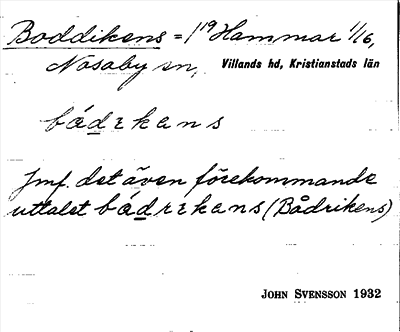 Boddikens = 1¹⁹ Hammar 1/16,
Nosaby sn, Villands hd, Kristianstads län
bádɪkans
Jmf. det även förekommande
uttalet bádrɪkans (Bådrikens)
JOHN SVENSSON 1932